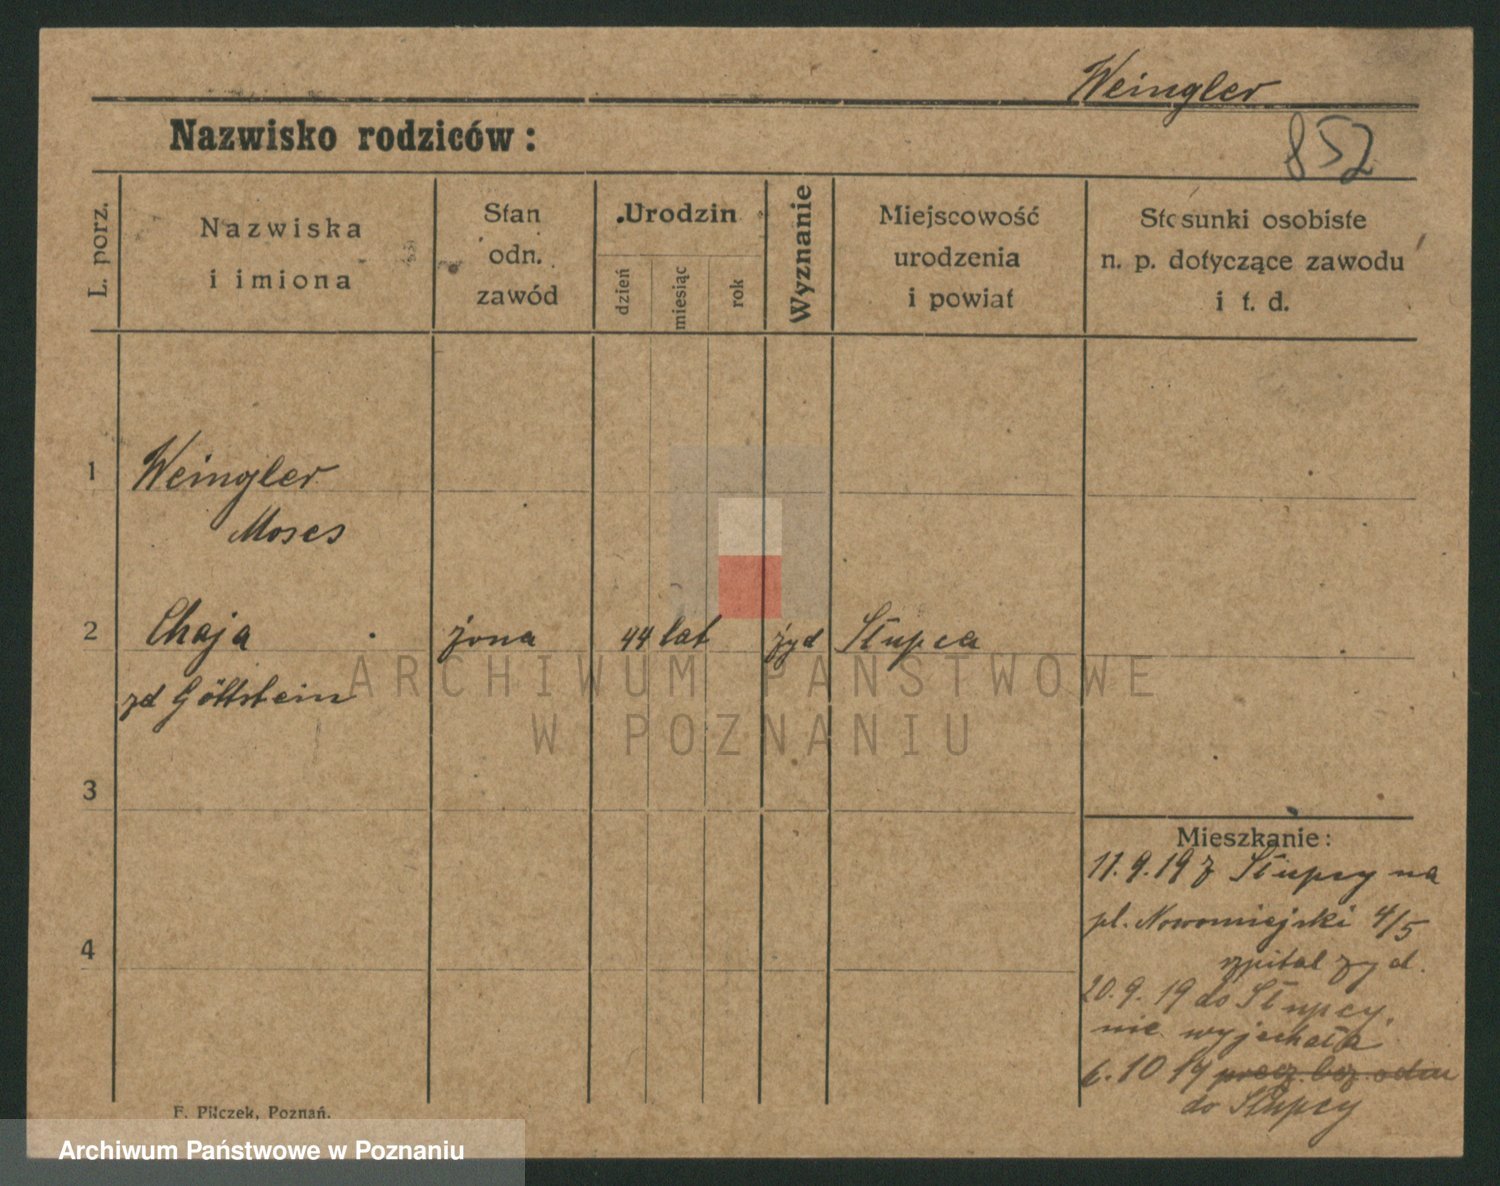 Weingler
Nazwisko rodziców:
852
L. porz.
Nazwiska
i imiona
Stan
odn.
zawód
Urodzin
dzień
miesiąc
rok
Wyznanie
Miejscowość
urodzenia
i powiat
Stosunki osobiste
n. p. dotyczące zawodu
i t. d.
1
Weingler
Moses
2 Chaja żona 44 lat żyd Słupca
zd Göttstein
ARCHIWUM PAŃSTWOWE
W POZNANIU
3
Mieszkanie:
11.9.19 z Słupcy na
pl. Nowomiejski 4/5
szpital żyd.
4
20.9.19 do Słupcy.
nie wyjechała
6.10 19 precz. bez odm
do Słupcy
F. Pilczek, Poznań.
Archiwum Państwowe w Poznaniu